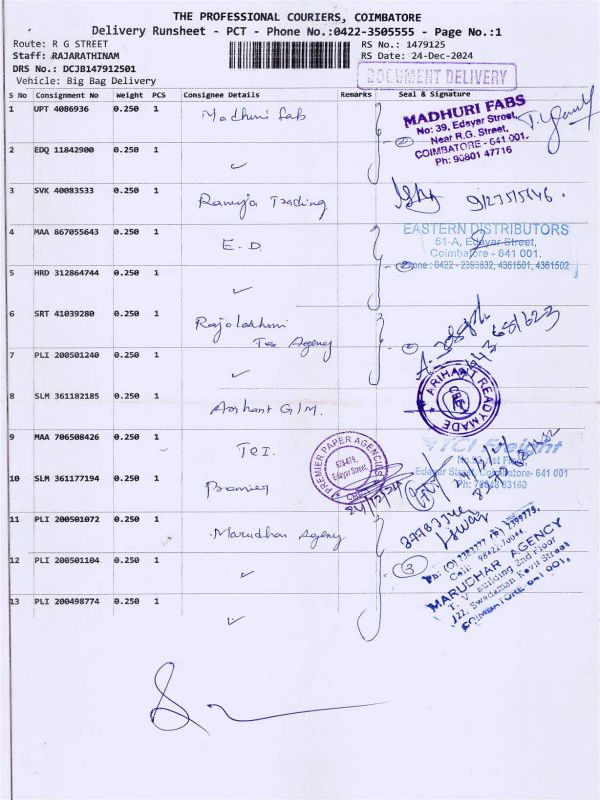 THE PROFESSIONAL COURIERS, COIMBATORE
Delivery Runsheet - PCT - Phone No.:0422-3505555 - Page No.:1
Route: R G STREET
RS No.: 1479125
Staff: RAJARATHINAM
RS Date: 24-Dec-2024
DRS No.: DCJB147912501
Vehicle: Big Bag Delivery
DOCUMENT DELIVERY
S No Consignment No Weight PCS Consignee Details Remarks Seal & Signature
1 UPT 4086936 0.250 1 Madhuri Fab
MADHURI FABS
No: 39, Edayar Street,
Near R.G. Street,
COIMBATORE - 641 001.
Ph: 90801 47716
2 EDQ 11842900 0.250 1 ✓ 2
3 SVK 40083533 0.250 1 Ramuja Trading
4 MAA 867055643 0.250 1 E.D
EASTERN DISTRIBUTORS
51-A, Edayar Street,
Coimbatore - 641 001.
Phone : 0422 - 2393832, 4361501, 4361502
5 HRD 312864744 0.250 1 ✓ 2
6 SRT 41039280 0.250 1 Rajalakshmi
Tex Agency
7 PLI 200501240 0.250 1 ✓ 2
8 SLM 361182185 0.250 1 Arihant G/M.
ARIHANT READYMADE
9 MAA 706508426 0.250 1 TCI.
TCI Freight
Edayar Street, Coimbatore- 641 001
10 SLM 361177194 0.250 1 Premier
PREMIER PAPER AGENCIES
Edayar Street,
24/12/24
11 PLI 200501072 0.250 1 Marudhar Agency
12 PLI 200501104 0.250 1 ✓ 3
MARUDHAR AGENCY
T. V. building 2nd Floor
122, Swadaman Kovil Street
COIMBATORE-641 001.
13 PLI 200498774 0.250 1 ✓